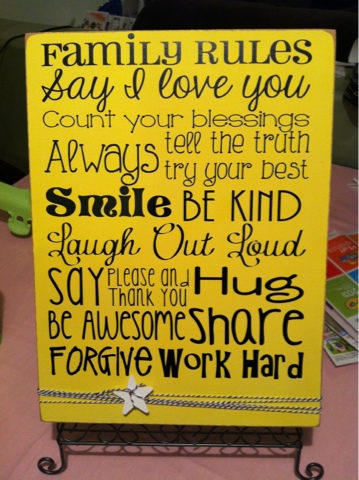 Family Rules
Say I love you
Count your blessings
Always tell the truth
try your best
Smile BE KIND
Laugh Out Loud
SAY Please and Thank You Hug
BE AWESOME Share
FORGIVE Work Hard